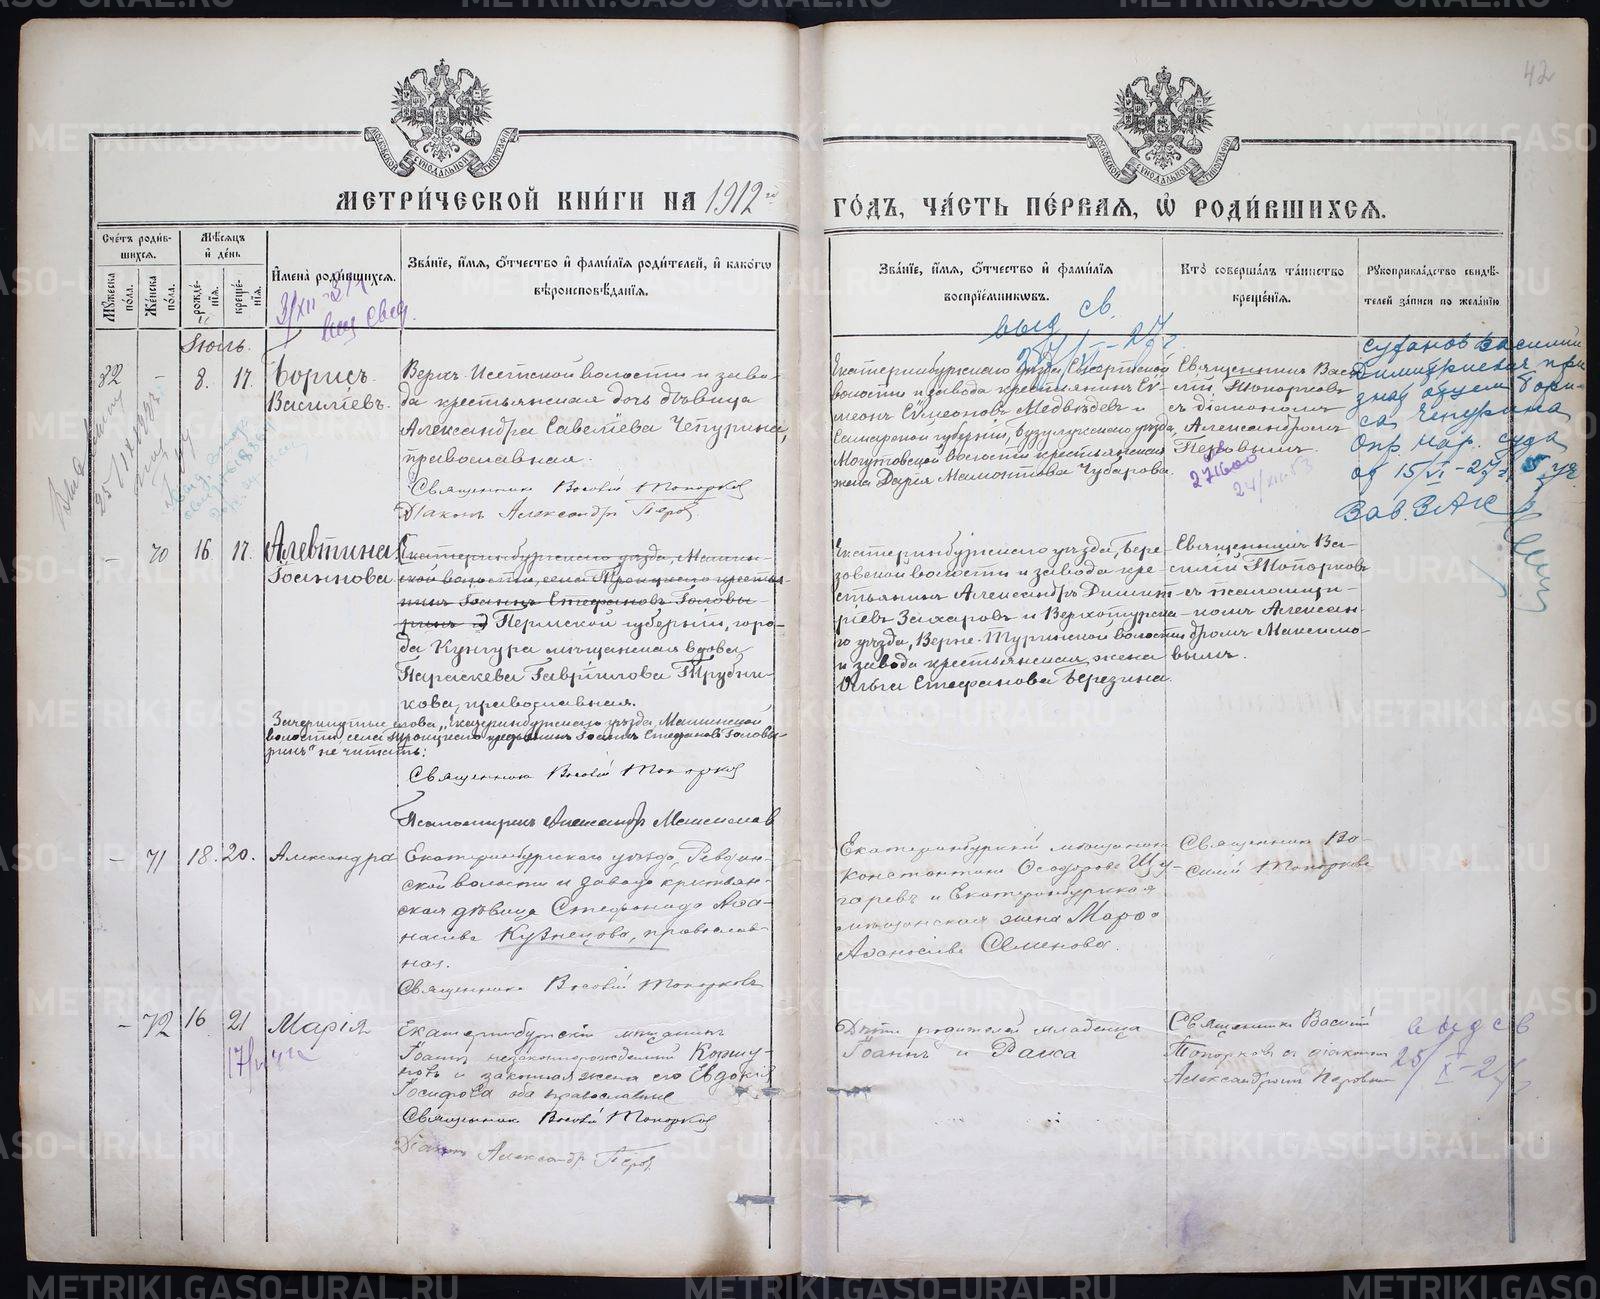 42
МОСКОВСКОЙ СУНОДАЛЬНОЙ ТИПОГРАФІИ
МОСКОВСКОЙ СУНОДАЛЬНОЙ ТИПОГРАФІИ
МЕТРИ́ЧЕСКОЙ КНИ́ГИ НА 1912 й
ГО́ДЪ, ЧА́СТЬ ПЕ́РВАЯ, Ѡ҆ РОДИ́ВШИХСѦ.
Сче́тъ роди́в-
шихся.
Мѣ́сяцъ
и҆ де́нь
Мꙋ́жеска
по́ла.
Же́нска
по́ла.
рожде́-
нїя.
креще́-
нїя.
И҆мена̀ роди́вшихся.
Зва́нїе, и҆́мя, ѻ҆́тчество и҆ фами́лїя роди́телей, и҆ како́гѡ
вѣроисповѣ́данїя.
Зва́нїе, и҆́мя, ѻ҆́тчество и҆ фами́лїя
воспрїе́мникѡвъ.
Кто̀ соверша́лъ та́инство
креще́нїя.
Рꙋкоприкла́дство свидѣ́-
телей за́писи по жела́нїю
3/XII
выд св.
Іюль.
82 - 8. 17.
Борисъ
Васильевъ.
Верхъ-Исетской волости и заво-
да крестьянская дочь дѣвица
Александра Савельева Чепурина,
православная.
Священникъ Василій Топорковъ
Діаконъ Александръ Перов
Екатеринбургского уѣзда, Сысертской
волости и завода крестьянинъ Си-
меонъ Симеоновъ Медвѣдевъ и
Самарской губерніи, Бузулукскаго уѣзда,
Могутовской волости крестьянская
жена Дарія Мамонтова Чубарова.
Священникъ Васи-
лій Топорковъ
съ діакономъ
Александромъ
Перовымъ.
Суфанов Василий
Димитриевич при-
знан отцем Бори-
са Чепурина
Опр. нар. суда
от 15/VI-27 г. 5 уч.
Зав. ЗАГС
- 70 16 17.
Алевтина
Іоаннова
Екатеринбургскаго уѣзда, Мамин-
ской волости, села Троицкаго крестья-
нинъ Іоаннъ Стефановъ Головы-
ринъ и Пермской губерніи, горо-
да Кунгура мѣщанская вдова
Параскева Гавріилова Трубни-
кова, православная.
Зачеркнутые слова „Екатеринбургскаго уѣзда, Маминской
волости села Троицкаго крестьянинъ Іоаннъ Стефановъ Головы-
ринъ“ не читать:
Священникъ Василій Топорков
Псаломщикъ Александръ Максимов
Екатеринбургскаго уѣзда, Бере-
зовской волости и завода кре-
стьянинъ Александръ Димит-
ріевъ Захаровъ и Верхотурска-
го уѣзда, Верхне-Туринской волости
и завода крестьянская жена
Ольга Стефанова Березина.
Священникъ Ва-
силій Топорковъ
съ псаломщи-
комъ Алексан-
дромъ Максимо-
вымъ.
- 71 18. 20.
Александра
Екатеринбургскаго уѣзда, Ревдин-
ской волости и завода крестьян-
ская дѣвица Стефанида Аѳа-
насіева Кузнецова, православ-
ная.
Священникъ Василій Топорковъ
Екатеринбургскій мѣщанинъ
Константинъ Ѳеодоровъ Щу-
гаревъ и Екатеринбургская
мѣщанская жена Марѳа
Аѳанасіева Семенова.
Священникъ Ва-
силій Топорковъ
- 72 16 21
Марія
Екатеринбургскій мѣщанинъ
Іоаннъ незаконнорожденный Коршу-
новъ и законная жена его Евдокія
Іосифова оба православные
Священникъ Василій Топорков
Діаконъ Александръ Перов
Дѣти родителей младенца
Іоаннъ и Раиса
Священникъ Василій
Топорковъ съ діакономъ
Александромъ Перовымъ
выд св
25/X-27
METRIKI.GASO-URAL.RU